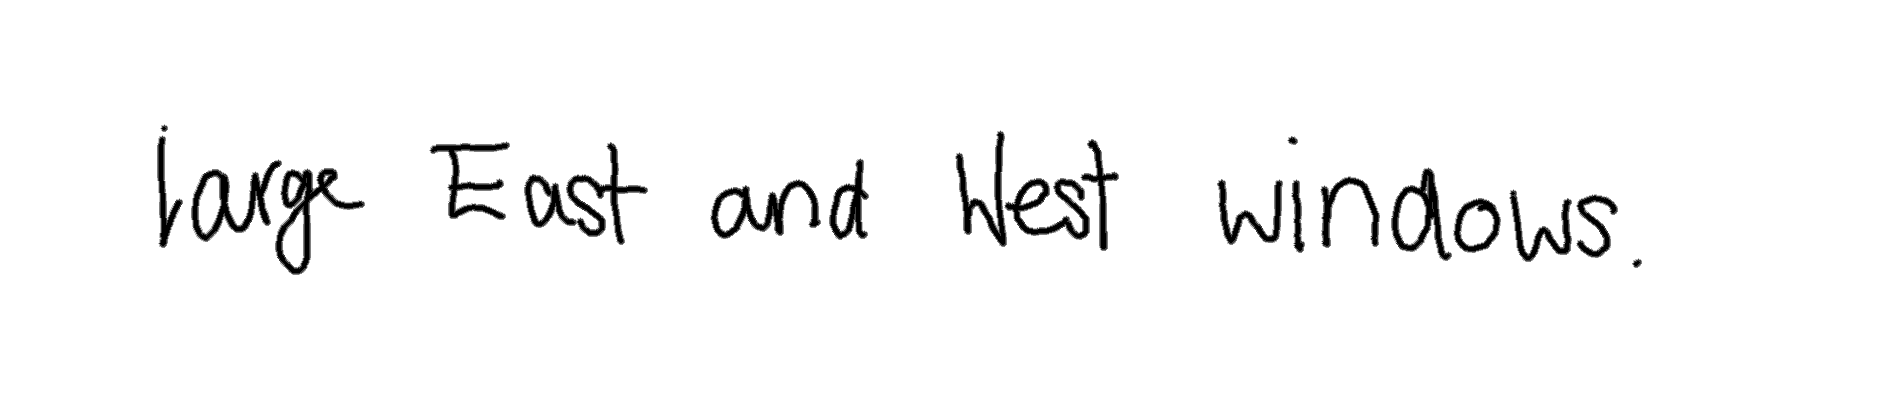 large East and West windows.